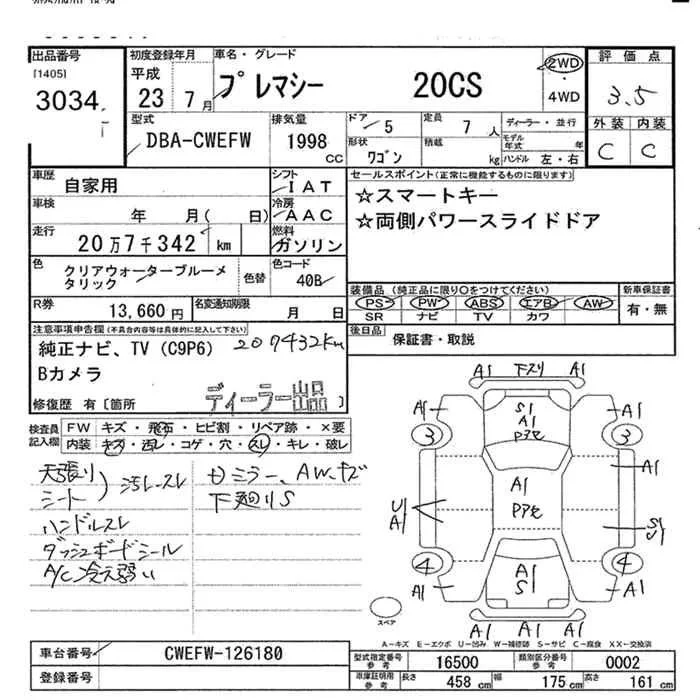 出品番号
[1405]
3034
初度登録年月
平成
23 7月
車名・グレード
プレマシー 20CS
2WD
4WD
評価点
3.5
外装 内装
C C
型式
DBA-CWEFW
排気量
1998
CC
ドア
5
形状
ワゴン
定員
7人
積載
kg
ディーラー・並行
モデル年式 年
ハンドル 左・右
車歴
自家用
シフト
IAT
車検
年 月( 日)
冷房
AAC
走行
20万7千342 km
燃料
ガソリン
セールスポイント(正常に機能するものに限ります)
☆スマートキー
☆両側パワースライドドア
色
クリアウォーターブルーメタリック
色替
色コード
40B
R券
13,660円
名変通知期限
月 日
装備品(純正品に限り○をつけてください)
PS PW ABS エアB AW
SR ナビ TV カワ
新車保証書
有・無
後日品
保証書・取説
注意事項申告欄(不具合内容等は具体的に記入して下さい)
純正ナビ、TV (C9P6) 207432km
Bカメラ
ディーラー出品
修復歴 有〔箇所 〕
検査員記入欄
FW キズ・飛石・ヒビ割・リペア跡・×要
内装 キズ・汚レ・コゲ・穴・スレ・キレ・破レ
天張り
シート
汚レスレ
ハンドルスレ
ダッシュボードシール
A/C冷え弱い
ミラー、AW、キズ
下廻りS
A1 下スリ A1
A1 A1
S1
A1
Pアセ
3 3
A1
A1
Pアセ
U1
A1
S1
U1
4 4
A1
S1
A1 A1
A1 A1
スペア
A=キズ E=エクボ U=凹み W=補修跡 S=サビ C=腐食 XX=交換済
車台番号
CWEFW-126180
登録番号
型式指定番号
参考
16500
類別区分番号
参考
0002
車庫証明用
参考
長さ 458 cm 幅 175 cm 高さ 161 cm